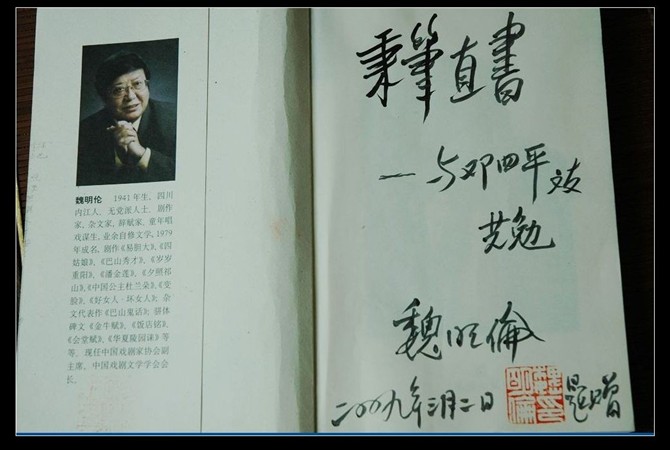 魏明伦　1941年生,四川
内江人。无党派人士。剧作
家、杂文家、辞赋家。童年唱
戏谋生,业余自修文学,1979
年成名。剧作《易胆大》、《四
姑娘》、《巴山秀才》、《岁岁
重阳》、《潘金莲》、《夕照祁
山》、《中国公主杜兰朵》、《变
脸》、《好女人·坏女人》;杂
文代表作《巴山鬼话》;骈体
碑文《金牛赋》、《饭店铭》、
《会堂赋》、《华夏陵园诔》等
等。现任中国戏剧家协会副
主席,中国戏剧文学学会会
长。
秉筆直書
—与邓四平友
共勉
魏明倫
二00九年三月二日
题赠